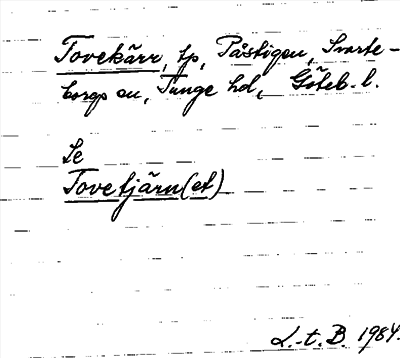 Tovekärr, tp, Påstigen, Svarte-
borgs sn, Tunge hd, Göteb. l.
Se
Tovetjärn(et)
L.-t. B. 1984.